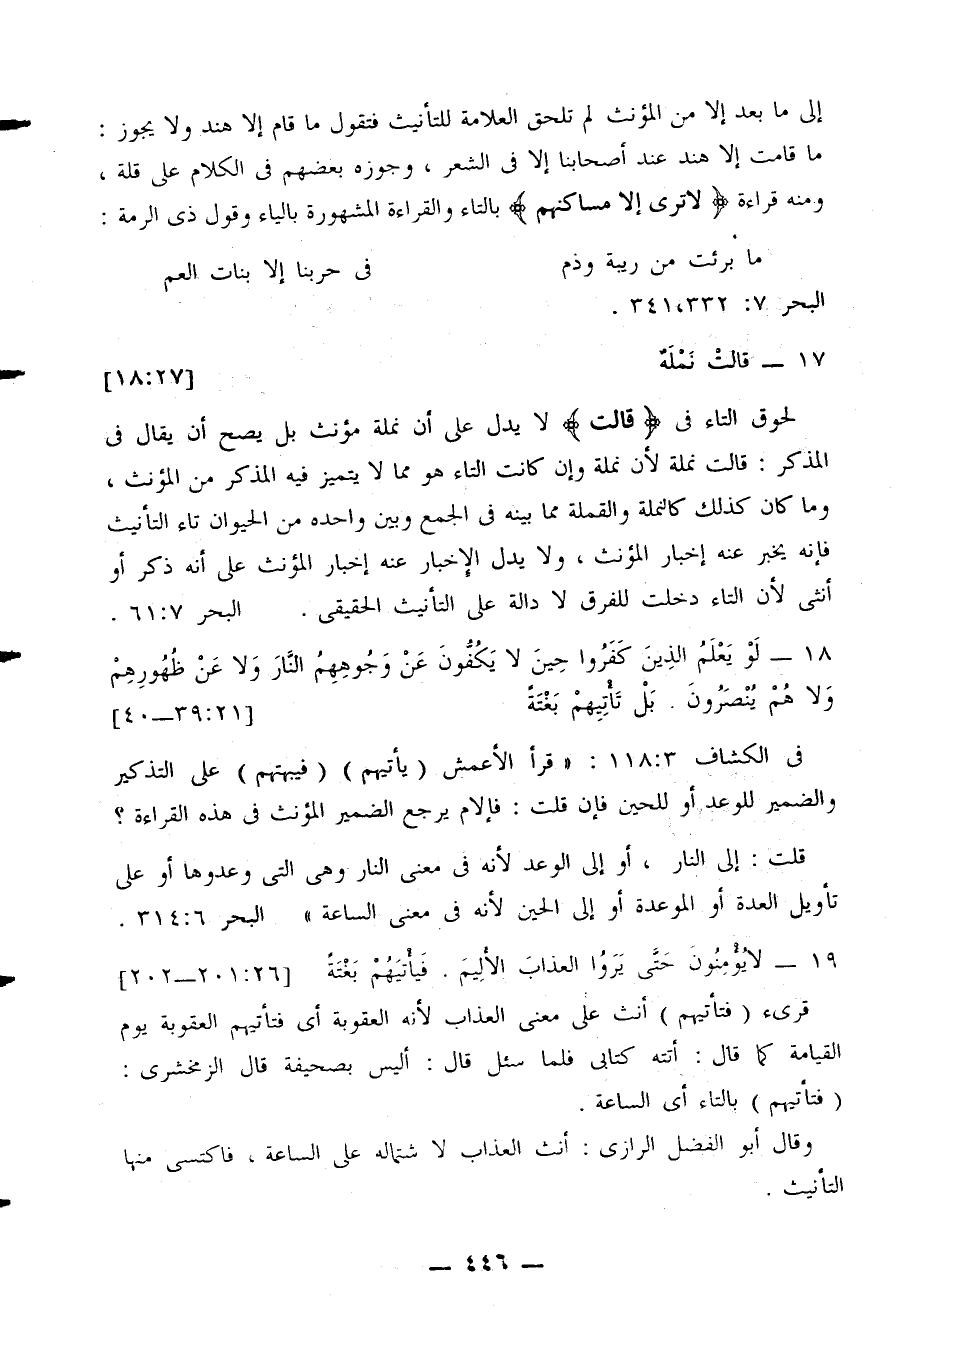 إلى ما بعد إلا من المؤنث لم تلحق العلامة للتأنيث فتقول ما قام إلا هند ولا يجوز :
ما قامت إلا هند عند أصحابنا إلا فى الشعر ، وجوزه بعضهم فى الكلام على قلة ،
ومنه قراءة ﴿ لاترى إلا مساكنهم ﴾ بالتاء والقراءة المشهورة بالياء وقول ذى الرمة :
ما برئت من ريبة وذم فى حربنا إلا بنات العم
البحر ٧: ٣٤١،٣٣٢ .
١٧ — قالتْ نَمْلَةٌ
[١٨:٢٧]
لحوق التاء فى ﴿ قالت ﴾ لا يدل على أن نملة مؤنث بل يصح أن يقال فى
المذكر : قالت نملة لأن نملة وإن كانت التاء هو مما لا يتميز فيه المذكر من المؤنث ،
وما كان كذلك كالنملة والقملة مما بينه فى الجمع وبين واحده من الحيوان تاء التأنيث
فإنه يخبر عنه إخبار المؤنث ، ولا يدل الإخبار عنه إخبار المؤنث على أنه ذكر أو
أنثى لأن التاء دخلت للفرق لا دالة على التأنيث الحقيقى . البحر ٦١:٧ .
١٨ — لَوْ يَعْلَمُ الذِينَ كَفَرُوا حِينَ لا يَكُفُّونَ عَنْ وَجُوهِهِمُ النَّارَ وَلا عَنْ ظُهُورِهِمْ
وَلا هُمْ يُنْصَرُونَ . بَلْ تَأْتِيهِمْ بَغْتَةً [٣٩:٢١—٤٠]
فى الكشاف ١١٨:٣ : « قرأ الأعمش ( يأتيهم ) ( فيبهتهم ) على التذكير
والضمير للوعد أو للحين فإن قلت : فإلام يرجع الضمير المؤنث فى هذه القراءة ؟
قلت : إلى النار ، أو إلى الوعد لأنه فى معنى النار وهى التى وعدوها أو على
تأويل العدة أو الموعدة أو إلى الحين لأنه فى معنى الساعة » البحر ٣١٤:٦ .
١٩ — لايُؤْمِنُونَ حَتَّى يَرَوُا العذابَ الأَلِيمَ . فَيَأْتِيَهُمْ بَغْتَةً [٢٠١:٢٦—٢٠٢]
قرىء ( فتأتيهم ) أنث على معنى العذاب لأنه العقوبة أى فتأتيهم العقوبة يوم
القيامة كما قال : أتته كتابى فلما سئل قال : أليس بصحيفة قال الزمخشرى :
( فتأتيهم ) بالتاء أى الساعة .
وقال أبو الفضل الرازى : أنث العذاب لا شتماله على الساعة ، فاكتسى منها
التأنيث .
— ٤٤٦ —